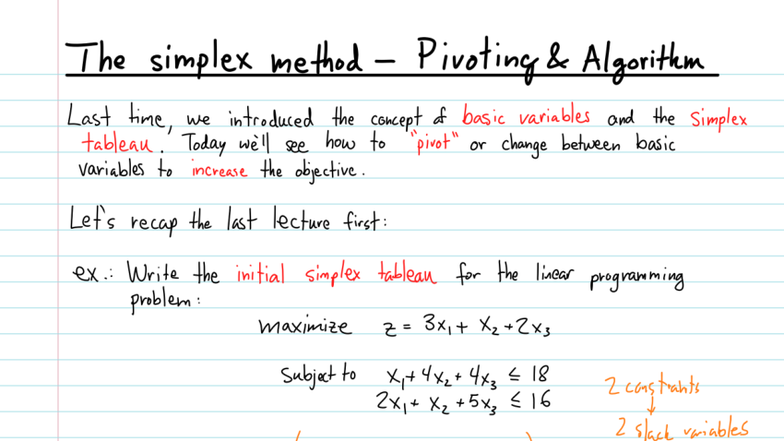 The simplex method – Pivoting & Algorithm
Last time, we introduced the concept of basic variables and the simplex
tableau. Today we'll see how to "pivot" or change between basic
variables to increase the objective.
Let's recap the last lecture first:
ex.: Write the initial simplex tableau for the linear programming
problem:
maximize z = 3x₁ + x₂ + 2x₃
Subject to x₁ + 4x₂ + 4x₃ ≤ 18
2x₁ + x₂ + 5x₃ ≤ 16
2 constraints
↓
2 slack variables